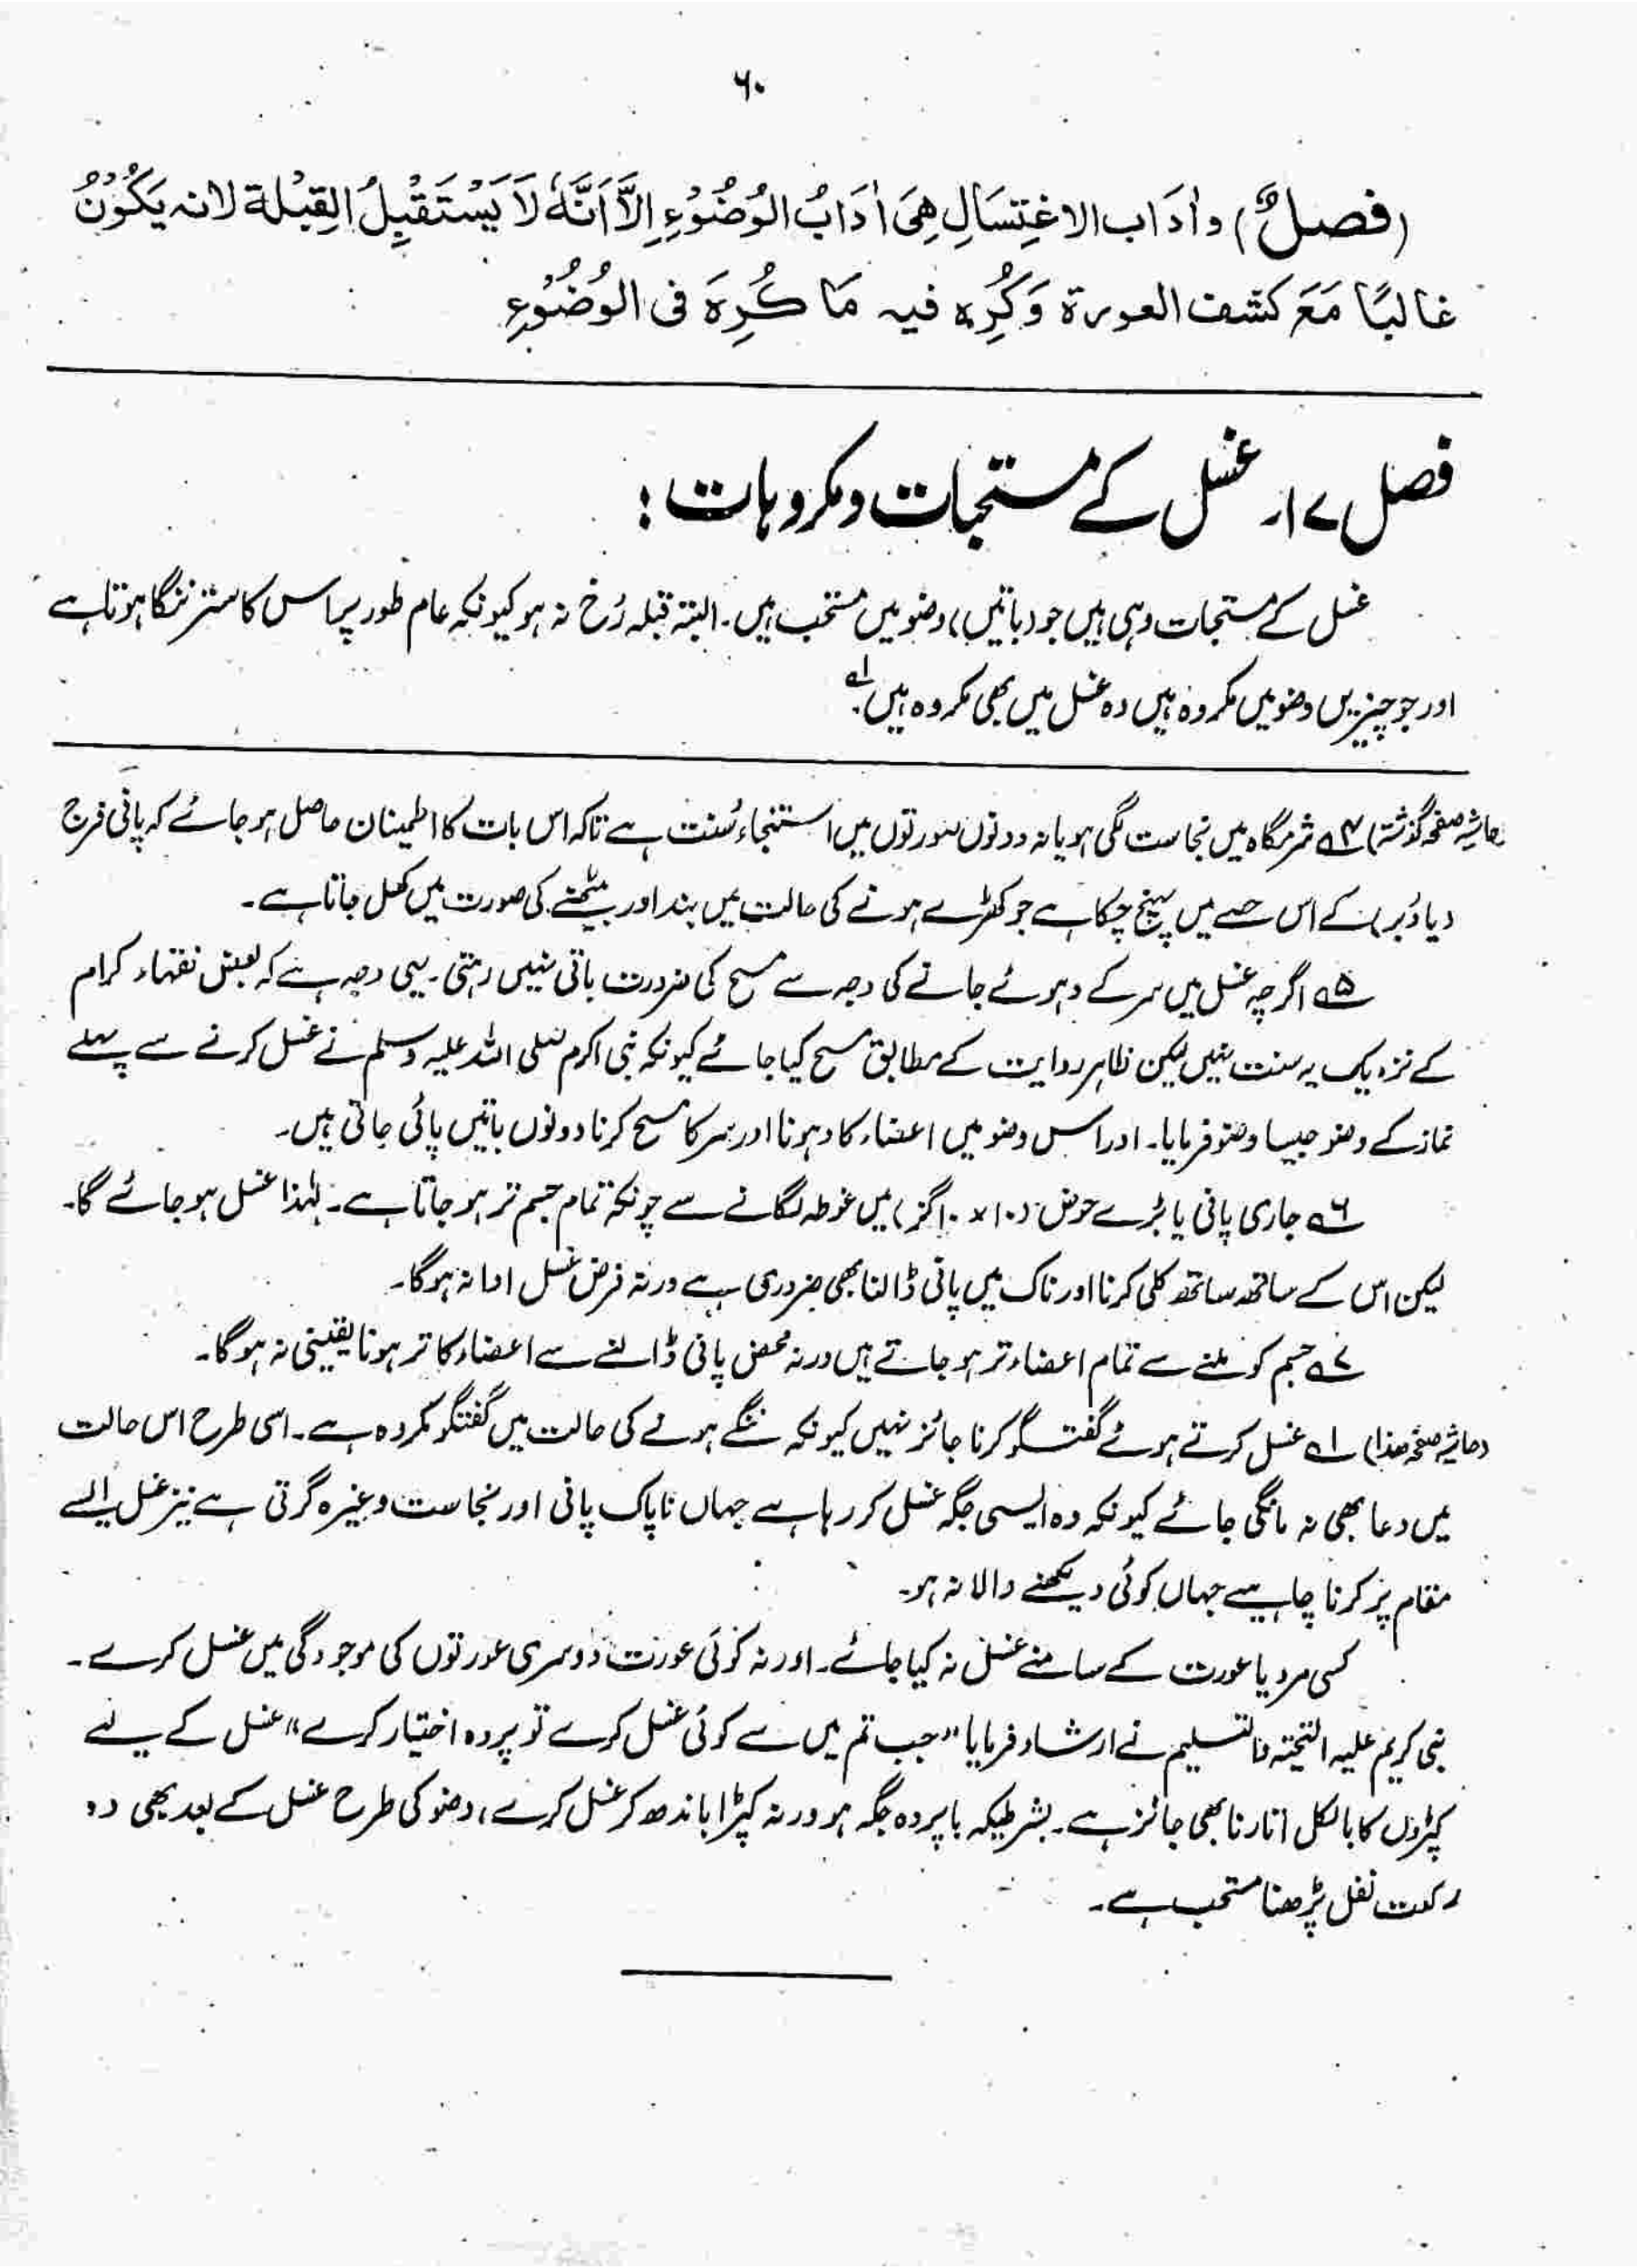 ۶۰
(فصلٌ) وأدَاب الاغتِسَالِ هِیَ اٰدَابُ الوُضُوْءِ اِلَّا اَنَّهٗ لَا یَسْتَقْبِلُ القِبْلة لانہ یَکُوْنُ
غالبًا مَعَ کشف العورة وَکُرِہ فیہ مَا کُرِہَ فی الوُضُوْءِ
فصل ۱۷۔ غسل کے مستحبات و مکروہات :
غسل کے مستحبات وہی ہیں جو (باتیں) وضو میں مستحب ہیں۔ البتہ قبلہ رُخ نہ ہو کیونکہ عام طور پر اس کا ستر ننگا ہوتا ہے
اور جو چیزیں وضو میں مکروہ ہیں وہ غسل میں بھی مکروہ ہیں۔ ۱؎
(حاشیہ صفحہ گذشتہ) ۴؎ شرمگاہ میں نجاست لگی ہو یا نہ دونوں صورتوں میں استنجاء سُنت ہے تاکہ اس بات کا اطمینان حاصل ہو جائے کہ پانی فرج
(یا دُبر) کے اس حصے میں پہنچ چکا ہے جو کھڑے ہونے کی حالت میں بند اور بیٹھنے کی صورت میں کھل جاتا ہے۔
۵؎ اگرچہ غسل میں سر کے دہوئے جانے کی وجہ سے مسح کی ضرورت باقی نہیں رہتی۔ یہی وجہ ہے کہ بعض فقہاء کرام
کے نزدیک یہ سنت نہیں لیکن ظاہر روایت کے مطابق مسح کیا جائے کیونکہ نبی اکرم صلی اللہ علیہ وسلم نے غسل کرنے سے پہلے
نماز کے وضو جیسا وضو فرمایا۔ اور اس وضو میں اعضاء کا دہونا اور سر کا مسح کرنا دونوں باتیں پائی جاتی ہیں۔
۶؎ جاری پانی یا بڑے حوض (۱۰×۱۰ گز) میں غوطہ لگانے سے چونکہ تمام جسم تر ہو جاتا ہے۔ لہٰذا غسل ہو جائے گا۔
لیکن اس کے ساتھ ساتھ کلی کرنا اور ناک میں پانی ڈالنا بھی ضروری ہے ورنہ فرض غسل ادا نہ ہوگا۔
۷؎ جسم کو ملنے سے تمام اعضاء تر ہو جاتے ہیں ورنہ محض پانی ڈالنے سے اعضاء کا تر ہونا یقینی نہ ہوگا۔
(حاشیہ صفحہ ھذا) ۱؎ غسل کرتے ہوئے گفتگو کرنا جائز نہیں کیونکہ ننگے ہونے کی حالت میں گفتگو مکروہ ہے۔ اسی طرح اس حالت
میں دعا بھی نہ مانگی جائے کیونکہ وہ ایسی جگہ غسل کر رہا ہے جہاں ناپاک پانی اور نجاست وغیرہ گرتی ہے نیز غسل ایسے
مقام پر کرنا چاہیے جہاں کوئی دیکھنے والا نہ ہو۔
کسی مرد یا عورت کے سامنے غسل نہ کیا جائے۔ اور نہ کوئی عورت دوسری عورتوں کی موجودگی میں غسل کرے۔
نبی کریم علیہ التحیتہ والتسلیم نے ارشاد فرمایا "جب تم میں سے کوئی غسل کرے تو پردہ اختیار کرے" غسل کے لیے
کپڑوں کا بالکل اتارنا بھی جائز ہے۔ بشرطیکہ باپردہ جگہ ہو ورنہ کپڑا باندھ کر غسل کرے، وضو کی طرح غسل کے بعد بھی دو
رکعت نفل پڑھنا مستحب ہے۔